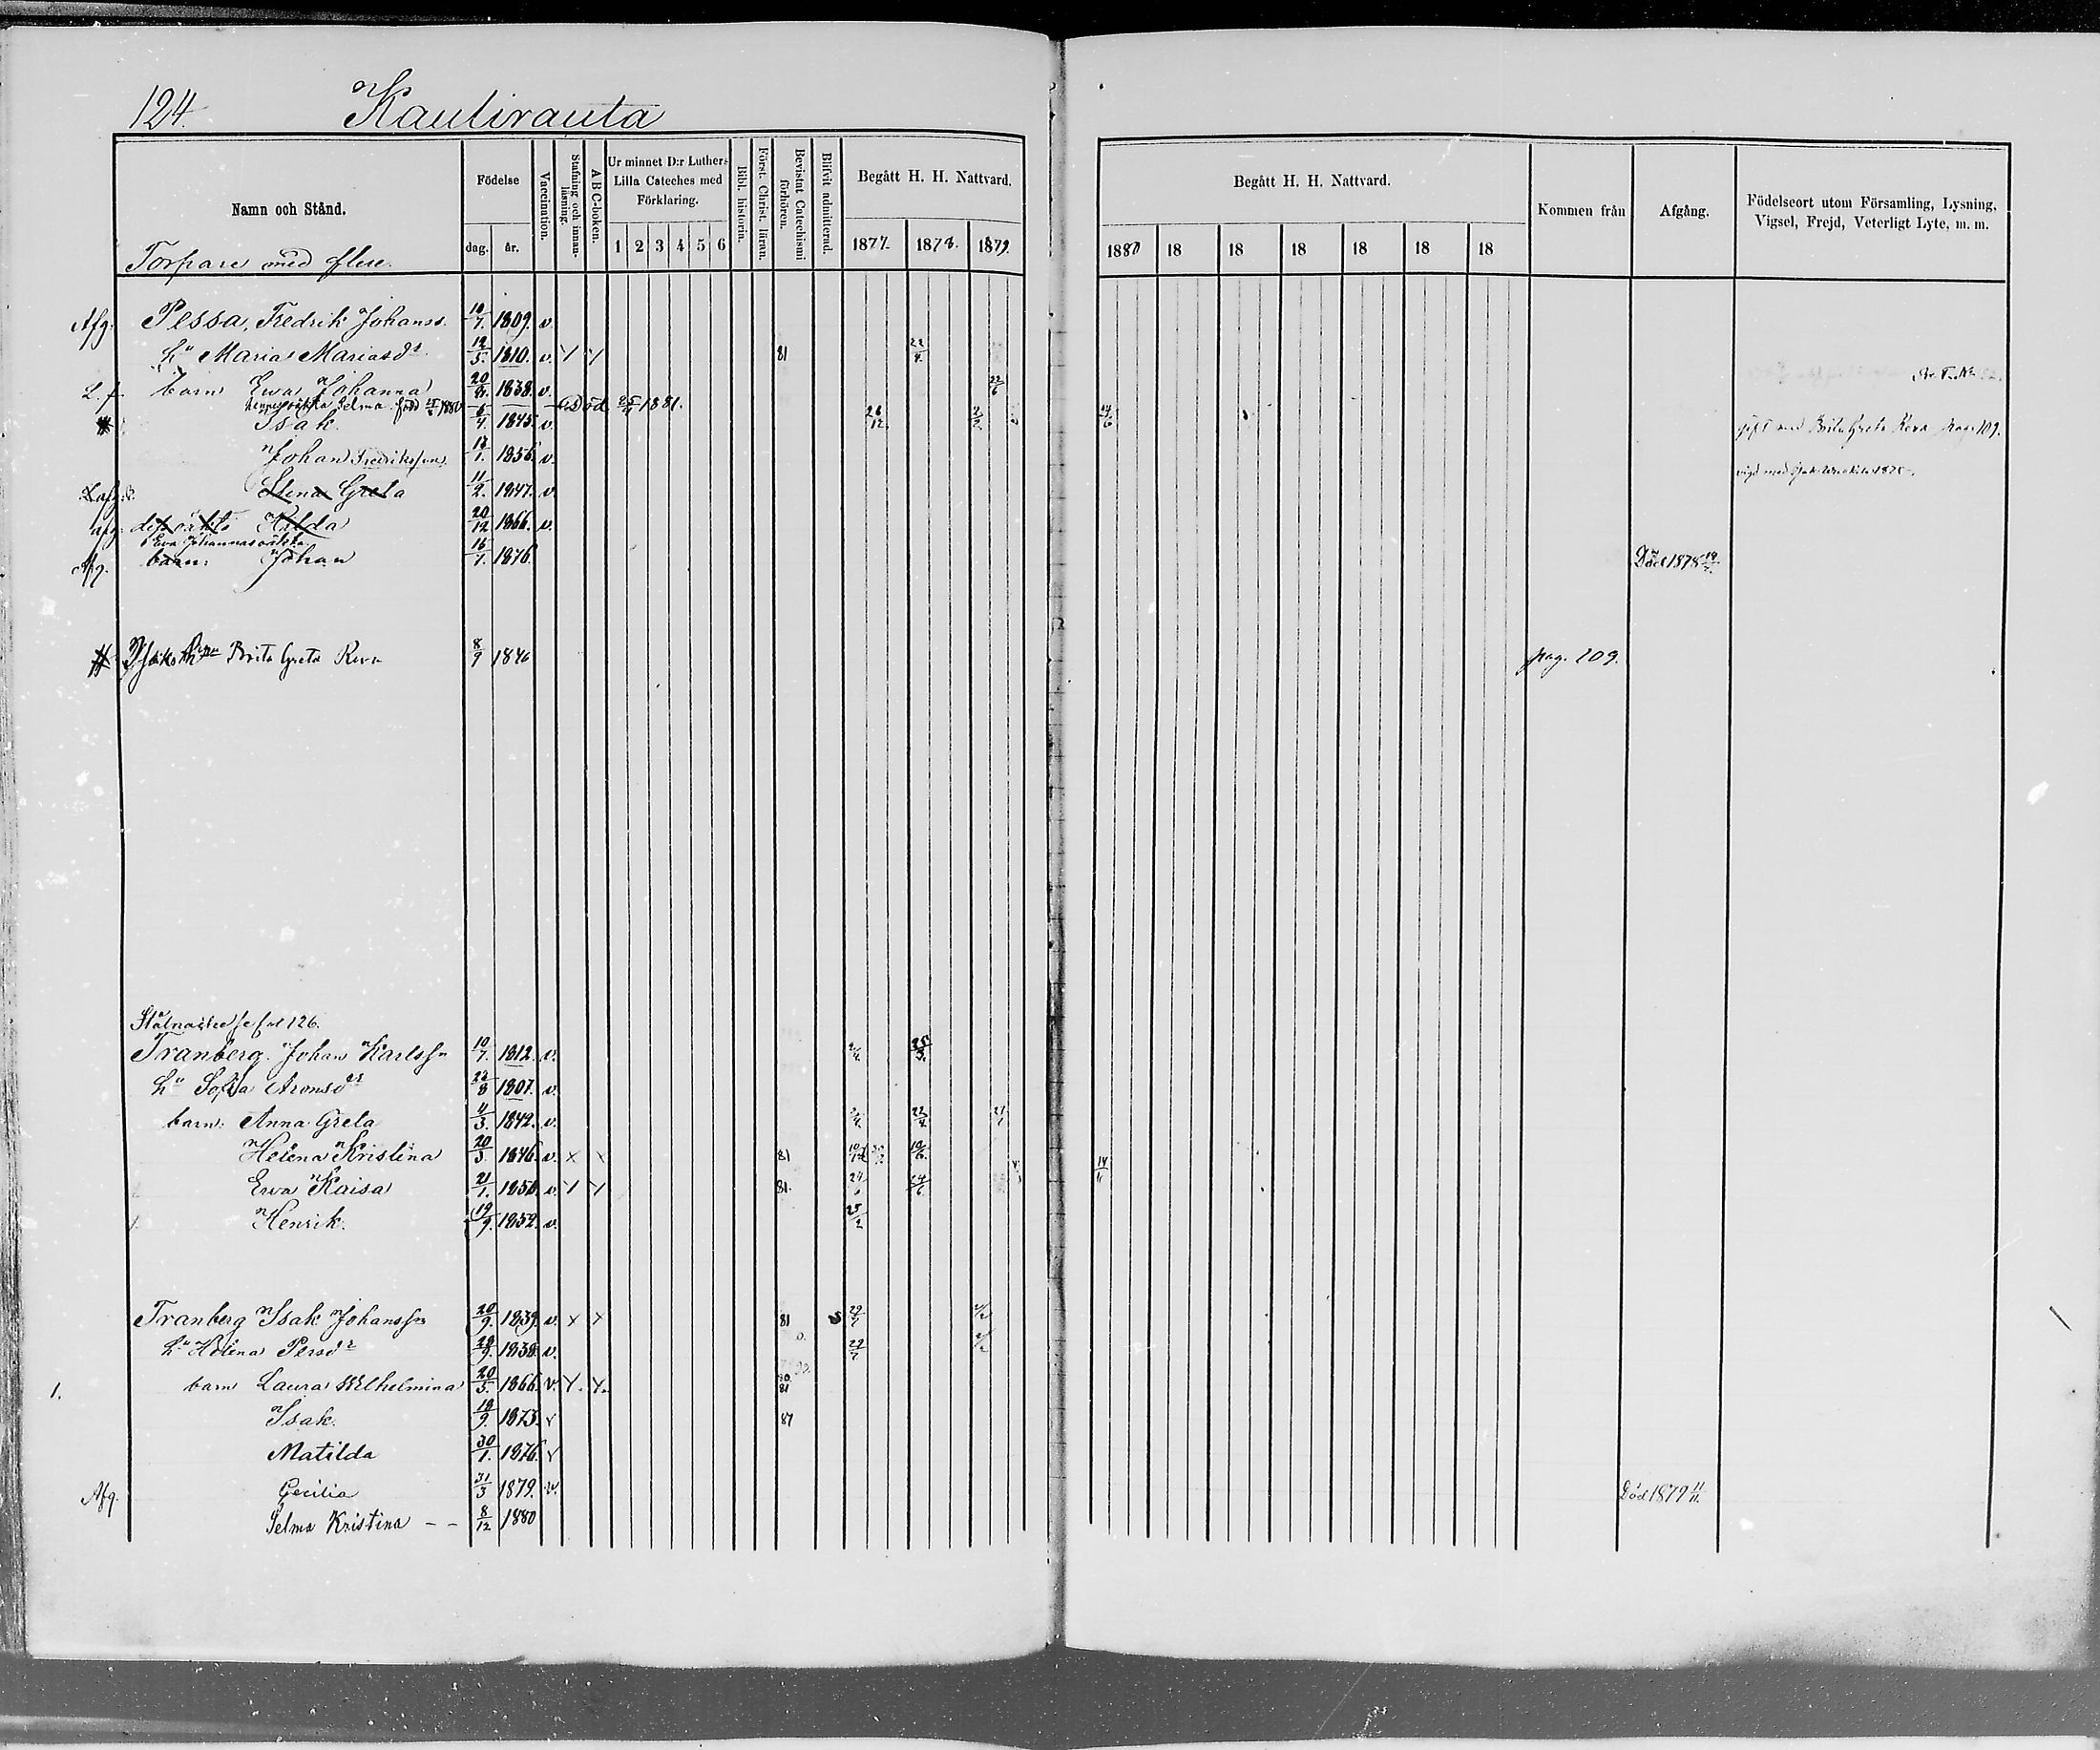 124. Kaulirauta
Namn och Stånd.
Födelse
dag. år.
Vaccination.
Stafning och innan-läsning.
A B C-boken.
Ur minnet D:r Luthers Lilla Cateches med Förklaring.
1 2 3 4 5 6
Bibl. historia.
Först. Christ. läran.
Bevistat Catechismi förhören.
Blifvit admitterad.
Begått H. H. Nattvard.
1877. 1878. 1879.
Begått H. H. Nattvard.
1880 18 18 18 18 18 18
Kommen från
Afgång.
Födelseort utom Församling, Lysning, Vigsel, Frejd, Veterligt Lyte, m. m.
Torpare med flere.
Afg. Pessa, Fredrik Johanss. 10/7. 1809. v.
hu Maria Mariasdr. 12/5. 1810. v. 81 22/4.
barn Ewa Johanna 20/8. 1838. v. 22/6
Selma född 1880 Död 25/4 1881.
Isak. 6/4. 1845. v. 26/12. 2/2 24/6 gift med Brita Greta Rova pag. 109.
Johan Fredriksson 1. 1856. v.
Stena Greta 11/2. 1847. v.
afg. dess oäkta Hilda 20/12 1866. v.
Ewa Johannas oäkta
Afg. barn: Johan 16/7. 1876. Död 1878
Brita Greta Rova 8/9 1846 pag. 109.
fol 126.
Tranberg. Johan Karlssn 10/7. 1812. v. 25/3.
hu Sofia Aronsdr 8 1807. v.
barn: Anna Greta 4/3. 1842. v. 22/4
Helena Kristina 20/3. 1846. v. x x 81
Ewa Kaisa 21/1. 1850. v. 81. 24/6 24/6
Henrik. 19/9. 1852. v. 25/2
Tranberg Isak Johanssn 20/9. 1839. v. x x 81
hu Helena Persdr 9. 1838. v. 22/7
1. barn Laura Wilhelmina 20/5. 1866. v. 80. 81
Isak. 18/9. 1873. v 81
Matilda 30/1. 1876. v
Afg. Cecilia 31/3 1879. v. Död 1879 11/11.
Selma Kristina - - 8/12 1880